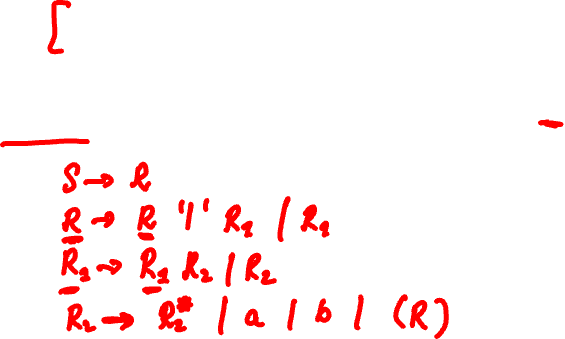 [
S → R
R → R '|' R₁ / R₁
R₁ → R₁ R₂ | R₂
R₂ → R₂* | a | b | (R)